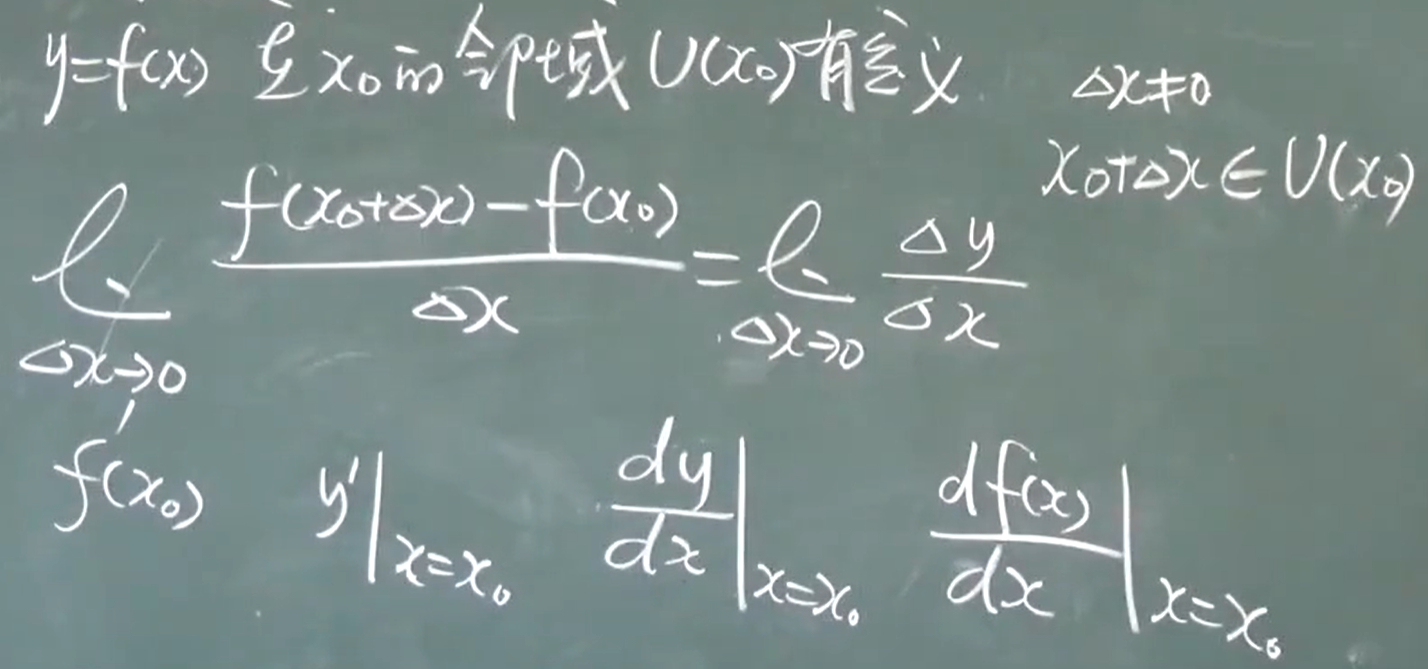 y=f(x) 在x₀的邻域U(x₀)有定义. Δx≠0
x₀+Δx∈U(x₀)
lim_{Δx→0} \frac{f(x₀+Δx)-f(x₀)}{Δx} = lim_{Δx→0} \frac{Δy}{Δx}
f'(x₀) y'|_{x=x₀} \frac{dy}{dx}|_{x=x₀} \frac{df(x)}{dx}|_{x=x₀}